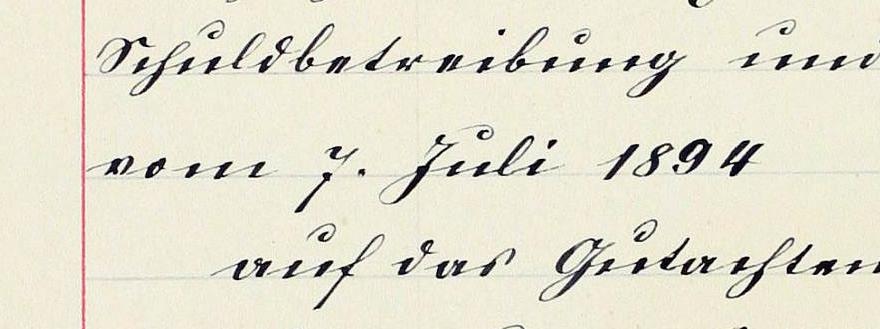 Schuldbetreibung und
vom 7. Juli 1894
auf das Gutachten